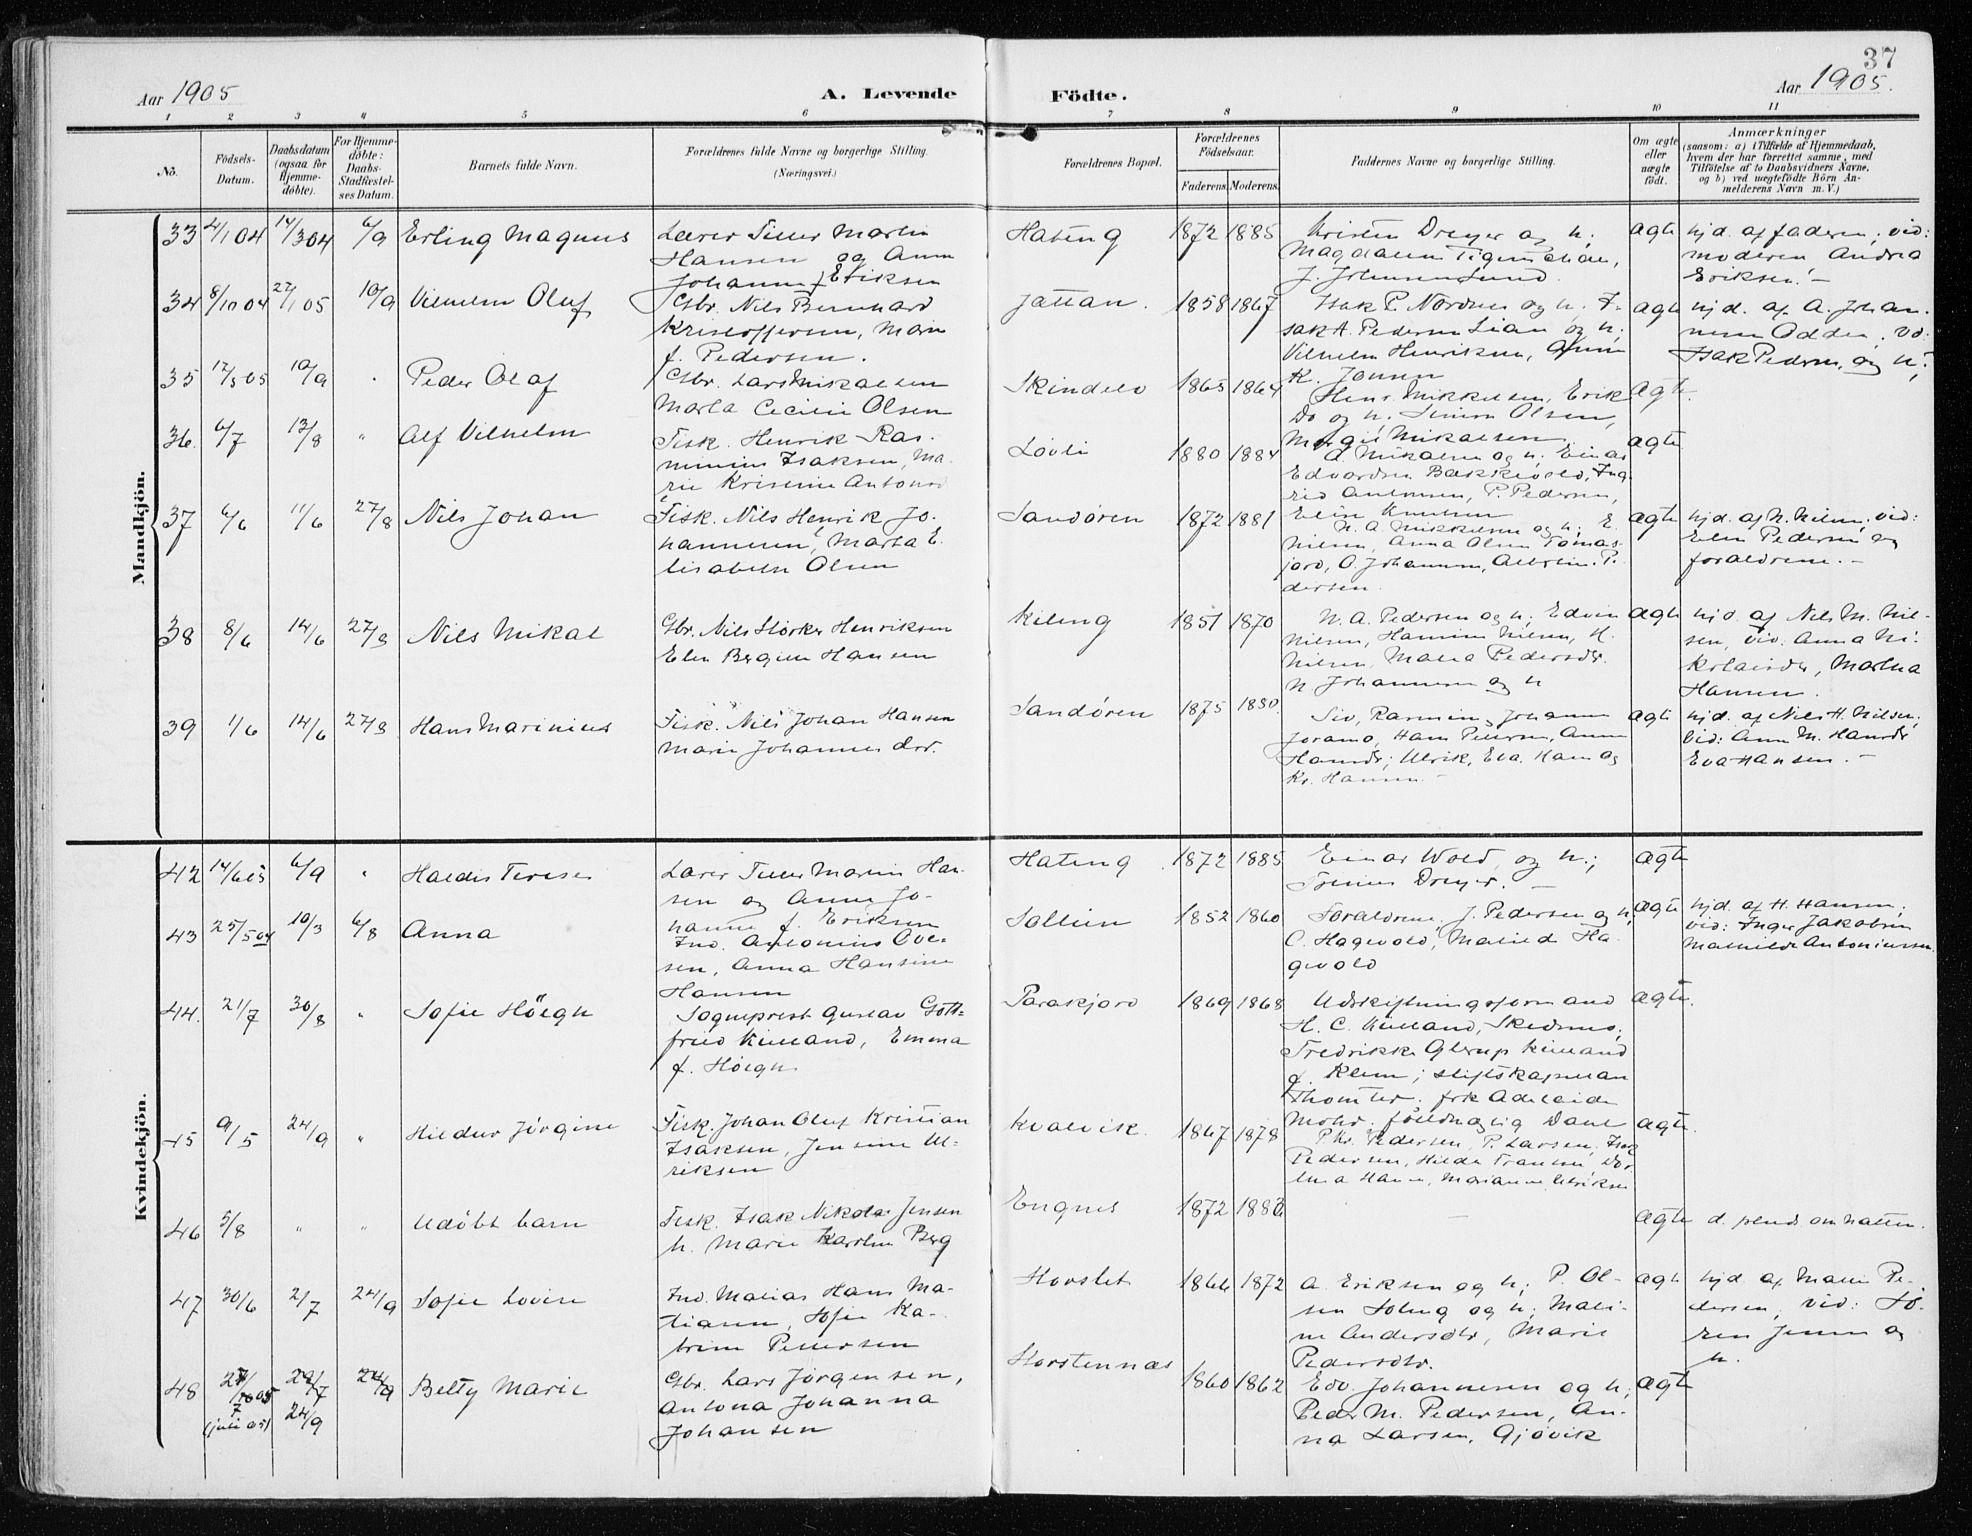 37
Aar 1905
A. Levende
Födte.
Aar 1905.
1 2 3 4 5 6 7 8 9 10 11
No.
Födsels-Datum.
Daabsdatum (ogsaa for Hjemme-döbte).
For Hjemme-döbte: Daabs-Stadfæstel-ses Datum.
Barnets fulde Navn.
Forældrenes fulde Navne og borgerlige Stilling.
(Næringsvei.)
Forældrenes Bopæl.
Forældrenes Födselsaar.
Faderens. Moderens.
Faddernes Navne og borgerlige Stilling.
Om ægte eller uægte födt.
Anmærkninger
(saasom: a) i Tilfælde af Hjemmedaab, hvem der har forrettet samme, med Tilföielse af to Daabsvidners Navne, og b) ved uægtefödte Börn An-melderens Navn m. V.)
Mandkjön.
33 4/1 04 14/3 04 6/9 Erling Magnus
Lærer Tiller Martin
Hansen og Anna
Johanne f. Eriksen
Hateng 1872 1885
Kristen Dreyer og h;
J. Johnsen Lund.
ægte
hjd. af faderen, vid:
moderen Andrea
Eriksen. –
34 8/10 04 27/1 05 10/9 Vilhelm Oluf
Gbr. Nils Bernhard
Kristoffersen, Mari
f. Pedersen.
Jattan. 1858 1867
Isak P. Nordnes og h, I-
sak A. Pedersen Lian og h.
Vilhelm Henriksen, Anna
K. Jensen
ægte
hjd. af A. Johan-
nesen Odden, vid:
Isak Pedersen og h;
35 17/5 05 10/9 " Peder Olaf
Gbr. Lars Mikalsen
Marta Cecilie Olsen
Skindelv 1865 1864
Henr. Mikkelsen, Erik
Do og h. Simon Olsen,
Margit Mikalsen
ægte.
36. 6/7 13/8 " Alf Vilhelm
Fisk. Henrik Ras-
minius Isaksen, Ma-
rie Kristine Antons
Løvli 1880 1884
A Mikalsen og h. Einar
Edvardsen Bakkevold, Ing-
rid Antonsen, P. Pedersen,
Elin Knutsen
ægte
37 6/6 11/6 27/8 Nils Johan
Fisk. Nils Henrik Jo-
hannesen, Marta E-
lisabeth Olsen
Sandøren 1872 1881
N. A. Mikkelsen og h; E.
Nilsen, Anna Olsen Tomas-
jord, O. Johannesen, Albertin. P-
dersen.
ægte
hjd. af N. Nilsen, vid:
Elen Pedersen og
forældrene. –
38 8/6 14/6 27/8 Nils Mikal
Gbr. Nils Størker Henriksen
Elen Bergitte Hansen
Kileng 1851 1870
N. A. Pedersen og h; Edvin
Nilsen, Hannine Nilsen, H.
Nilsen, Malea Pedersdr.
N Johannesen og h
ægte
hjd. af Nils M. Nil-
sen, vid. Anna Ni-
kolaisdr, Martha
Hansen.
39 1/6 14/6 27/8 Hans Marinius
Fisk. Nils Johan Hansen
Marie Johannes dtr.
Sandøren 1875 1880.
Siv, Rasmine, Johanne
Joramo, Hans Petersen, Anne
Hansdr; Ulrik, Eva, Hans og
Kr. Hansen. –
ægte
hjd. af Nils H. Nilsen;
vid: Anne M. Hansdr
Eva Hansen. –
Kvindekjön.
42 14/6 05 6/9 " Haldis Terese
Lærer Tiller Martin Han-
sen og Anna Jo-
hanne f. Eriksen
Hateng 1872 1885
Einar Wold, og h.;
Dreyer. –
ægte
43 25/5 04 10/3 6/8 Anna
Ind. Antonius Ove-
sen, Anna Hansine
Hansen
Sollien 1852 1860
Forældrene. J. Pedersen og h,
C. Hagevold, Matild Ha-
gevold
ægte
hjd. af H. Hansen,
vid: Inger Jakobsen
Mathilde Antoniussen
44. 21/7 30/8 " Sofie Höegh
Sogneprest Gustav Gott-
fried Kielland, Emma
f. Höegh
Parakjord 1869 1868
Udskiftningsformand
H. C. Kielland, Skedsmo,
Fredrikke Glerup Kielland
f. Klem; stiftskapellan
Thomter. frk Adelaide
Mohr.
ægte.
45 9/5 24/9 " Hildur Jørgine
Fisk. Johan Oluf Kristian
Isaksen, Jensine Ul-
riksen
Kvalvik. 1867 1878
P. Kr. Pedersen, P. Larsen, Isak
Pedersen, Hilda Fransen, Dor-
thea Hansen, Marianne Ulriksen
ægte.
46 5/8 " " Udøbt barn
Fisk. Isak Nikolai Jensen
h. Marie Karoline Berg
Engnes 1872 1886
–
ægte d. plud. om natten.
47 30/6 2/7 24/9 Sofie Lovise
Ind. Matias Hans Ma-
tiasen, Sofie Ka-
trine Pettersen
Horslet 1866 1872
A. Eriksen og h; P. Ol-
sen Soleng og h; Mari-
ne Andersdtr, Marie
Pedersdtr.
ægte
hjd. af Marie Pe-
dersen, vid: Sö-
ren Jensen og
h.
48 27/7 05 (juli 05) 29/7 24/9 24/9 Betty Marie
Gbr. Lars Jørgensen,
Antona Johanna
Johansen
Horstennæs 1860 1862
Edv. Johannesen og h;
Peder M. Pedersen, An-
na Larsen, Gjøvik
ægte